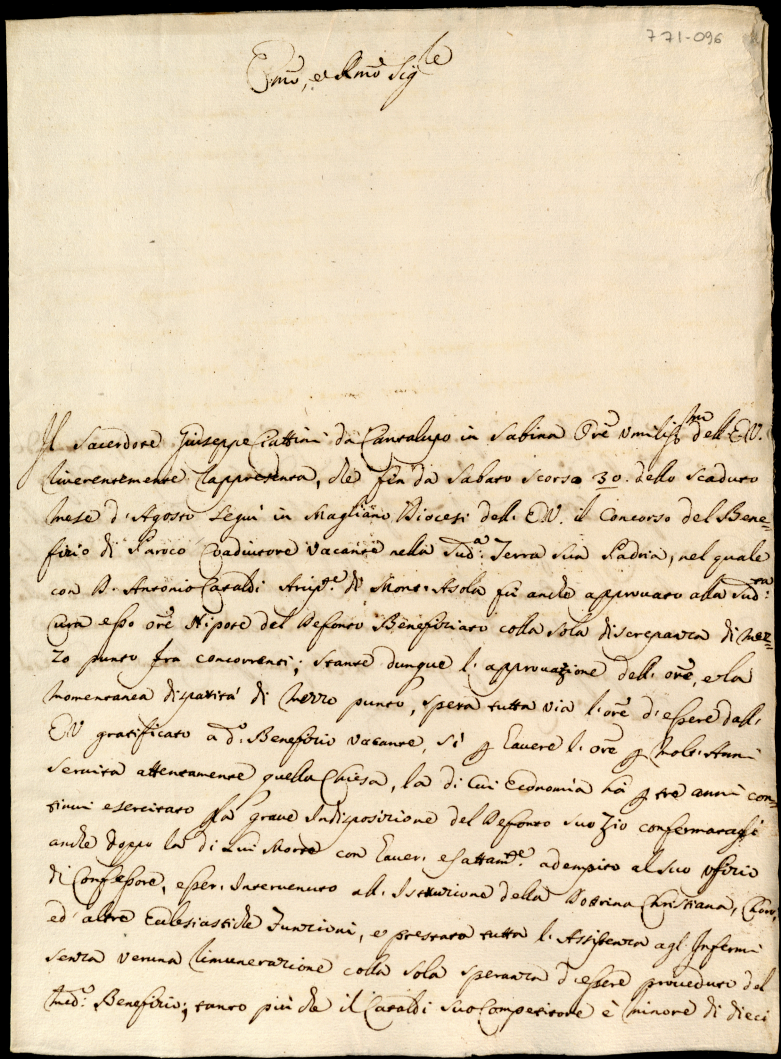 771-096
Emo, e Rmo Sigre
Il Sacerdote Giuseppe Ciattini da Cantalupo in Sabina Ore umilissmo dell'E.V.
riverentemente rappresenta, che fin da Sabato scorso 30. dello scaduto
mese d'Agosto seguì in Magliano Diocesi dell'E.V. il Concorso del Bene=
fizio di Paroco Coadiutore vacante nella Suda. Terra sua Padria, nel quale
con D. Antonio Cataldi Aripte. di Mont'Asola fù anche approvato alla Sudta.
cura esso ore Nipote del Defonto Benefiziato colla sola discrepanza di mez=
zo punto fra concorrenti; stante dunque l'approvazione dell'ore, e la
momentanea disparità di mezzo punto, spera tutta via l'ore d'essere dall'
E.V. gratificato a do. Benefizio vacante, sì p avere l'ore p molt'Anni
servita attentamente quella Chiesa, la di cui Economia hà p tre anni con=
tinui esercitato p la grave Indisposizione del Defonto suo Zio confermatagli
anche doppo la di Lui Morte con aver' esattame. adempito al suo uffizio
di Confessore, esser' Intervenuto all'Istruzione della Dottrina Christiana, Choro,
ed' altre Eclesiastiche Funzioni, e prestata tutta l'Assistenza agl'Infermi
senza veruna rimunerazione colla sola speranza d'essere proveduto del
medo. Benefizio; tanto più che il Cataldi suo Competitore è minore di dieci